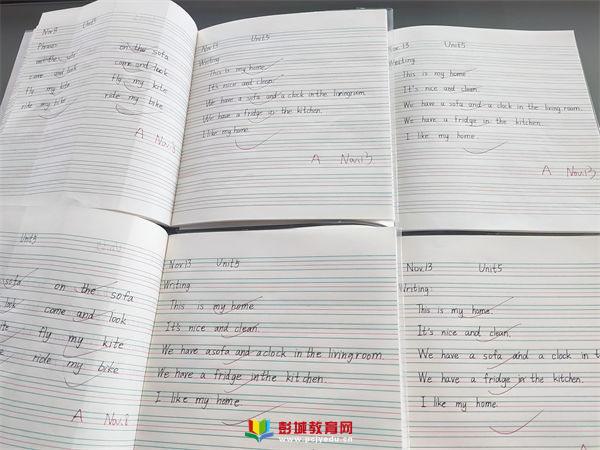 Nov.13 Unit5
Phrases:
on the sofa
come and look come and look
fly my kite fly my kite
ride my bike ride my bike
A Nov.13
Nov.13 Unit5
Writing
This is my home.
It's nice and clean.
We have a sofa and a clock in the livingroom.
We have a fridge in the kitchen.
I like my home.
A Nov.13
Nov.13 Unit5
Writing
This is my home.
It's nice and clean.
We have a sofa and a clock in the living room.
We have a fridge in the kitchen.
I like my home.
A Nov.13
Unit5
sofa on the sofa
look come and look
kite fly my kite
ride my bike
A Nov.
Nov.13 Unit5
Writing
This is my home
It's nice and clean.
We have asofa and aclock in the livingroom.
We have a fridge inthe kitchen.
I like my home.
Nov.13 Unit5
Writing:
This is my home.
It's nice and clean.
We have a sofa and a clock in t
We have a fridge in the kitchen.
I like my home.
彭城教育网
www.pcjyedu.cn